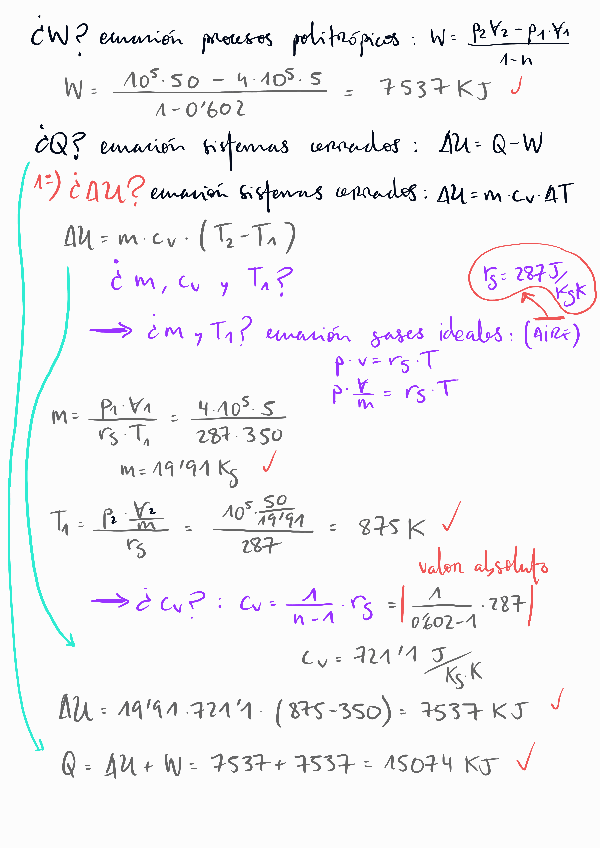 ¿W? ecuación procesos politrópicos : W = (p2∀2 - p1·∀1)/(1-n)
W = (10⁵·50 - 4·10⁵·5)/(1-0'602) = 7537 KJ ✓
¿Q? ecuación sistemas cerrados : ΔU = Q-W
1º) ¿ΔU? ecuación sistemas cerrados : ΔU = m·cv·ΔT
ΔU = m·cv·(T2-T1)
¿m, cv y T1?
rg = 287 J/KgK
→ ¿m y T1? ecuación gases ideales : (AIRE)
p·v = rg·T
p·∀/m = rg·T
m = (p1·∀1)/(rg·T1) = (4·10⁵·5)/(287·350)
m = 19'91 Kg ✓
T1 = (p2·∀2/m)/rg = (10⁵·50/19'91)/287 = 875 K ✓
valor absoluto
→ ¿cv? : cv = 1/(n-1) · rg = |1/(0'602-1) · 287|
cv = 721'1 J/Kg·K
ΔU = 19'91·721'1·(875-350) = 7537 KJ ✓
Q = ΔU + W = 7537 + 7537 = 15074 KJ ✓